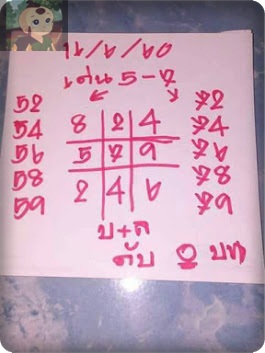 /๖/๖๐
เด่น 5-7
52 72
54 8 2 4 74
5๖ 5 7 9 7๖
58 2 4 ๖ 78
59 79
บ+ล
ดับ 0